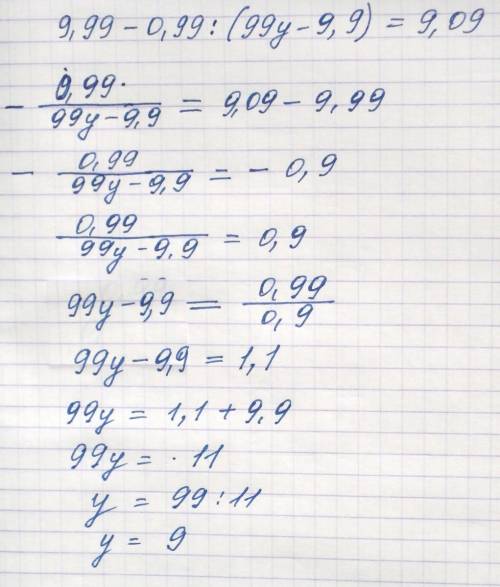 9,99 - 0,99 : (99y - 9,9) = 9,09
- 0,99 / 99y - 9,9 = 9,09 - 9,99
- 0,99 / 99y - 9,9 = - 0,9
0,99 / 99y - 9,9 = 0,9
99y - 9,9 = 0,99 / 0,9
99y - 9,9 = 1,1
99y = 1,1 + 9,9
99y = 11
y = 99 : 11
y = 9